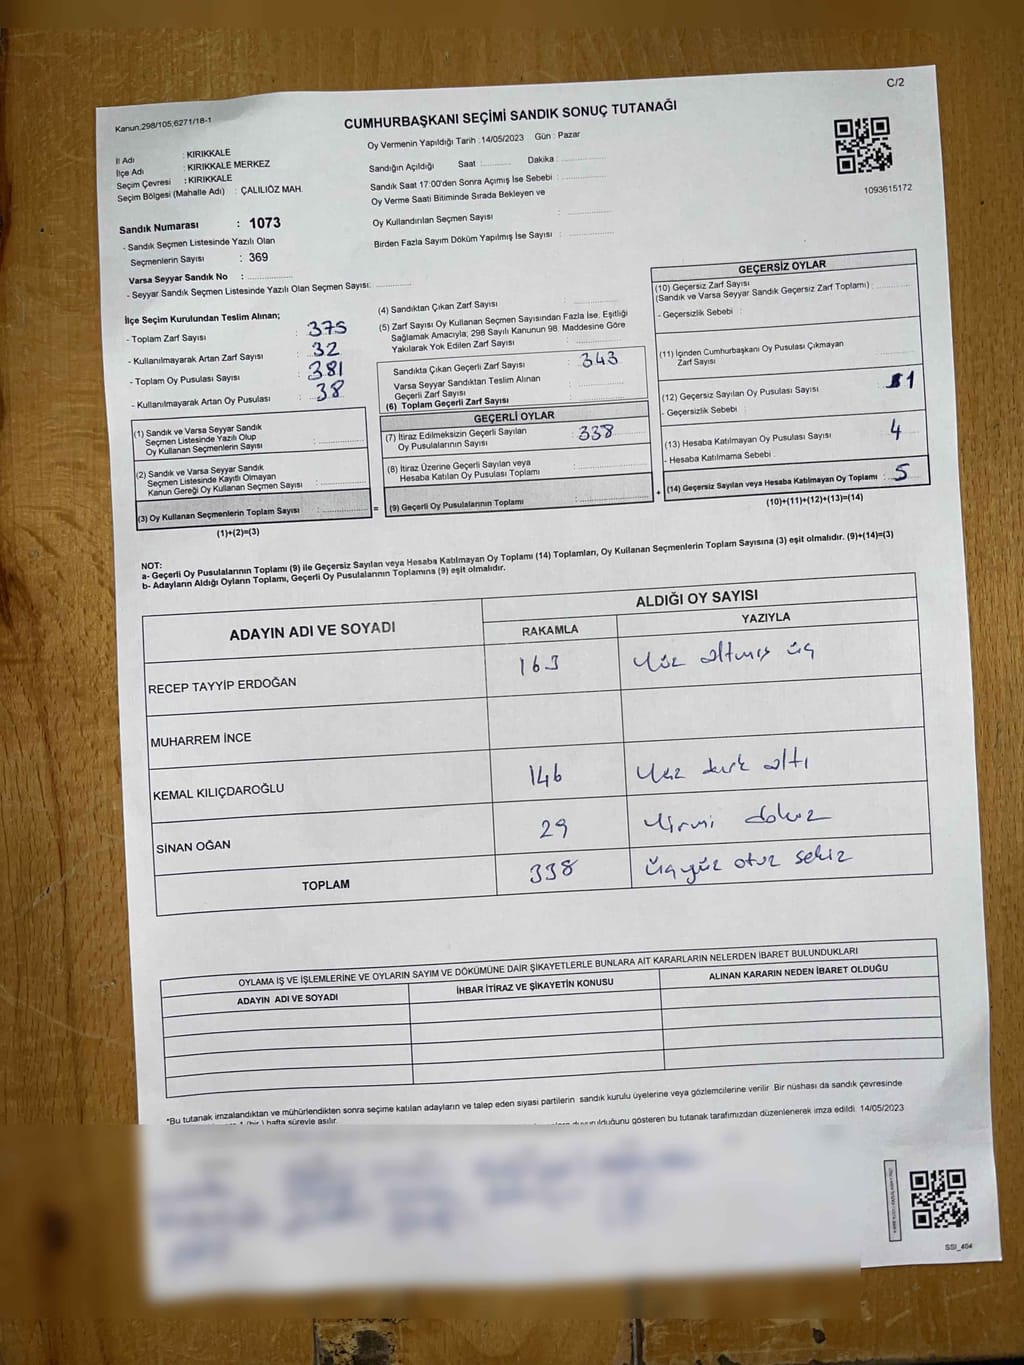 C/2
Kanun;298/105;6271/18-1
CUMHURBAŞKANI SEÇİMİ SANDIK SONUÇ TUTANAĞI
Oy Vermenin Yapıldığı Tarih : 14/05/2023 Gün : Pazar
İl Adı : KIRIKKALE
İlçe Adı : KIRIKKALE MERKEZ
Seçim Çevresi : KIRIKKALE
Seçim Bölgesi (Mahalle Adı) : ÇALILIÖZ MAH.
Sandığın Açıldığı Saat : Dakika :
Sandık Saat 17:00'den Sonra Açımış İse Sebebi :
Oy Verme Saati Bitiminde Sırada Bekleyen ve
Oy Kullandırılan Seçmen Sayısı :
Birden Fazla Sayım Döküm Yapılmış İse Sayısı :
1093615172
Sandık Numarası : 1073
- Sandık Seçmen Listesinde Yazılı Olan
Seçmenlerin Sayısı : 369
Varsa Seyyar Sandık No :
- Seyyar Sandık Seçmen Listesinde Yazılı Olan Seçmen Sayısı:
İlçe Seçim Kurulundan Teslim Alınan;
- Toplam Zarf Sayısı : 375
- Kullanılmayarak Artan Zarf Sayısı : 32
- Toplam Oy Pusulası Sayısı : 381
- Kullanılmayarak Artan Oy Pusulası : 38
(1) Sandık ve Varsa Seyyar Sandık
Seçmen Listesinde Yazılı Olup
Oy Kullanan Seçmenlerin Sayısı :
(2) Sandık ve Varsa Seyyar Sandık
Seçmen Listesinde Kayıtlı Olmayan
Kanun Gereği Oy Kullanan Seçmen Sayısı :
(3) Oy Kullanan Seçmenlerin Toplam Sayısı :
(1)+(2)=(3)
(4) Sandıktan Çıkan Zarf Sayısı :
(5) Zarf Sayısı Oy Kullanan Seçmen Sayısından Fazla İse, Eşitliği
Sağlamak Amacıyla; 298 Sayılı Kanunun 98. Maddesine Göre
Yakılarak Yok Edilen Zarf Sayısı :
Sandıkta Çıkan Geçerli Zarf Sayısı : 343
Varsa Seyyar Sandıktan Teslim Alınan
Geçerli Zarf Sayısı :
(6) Toplam Geçerli Zarf Sayısı :
GEÇERLİ OYLAR
(7) İtiraz Edilmeksizin Geçerli Sayılan
Oy Pusulalarının Sayısı : 338
(8) İtiraz Üzerine Geçerli Sayılan veya
Hesaba Katılan Oy Pusulası Toplamı :
= (9) Geçerli Oy Pusulalarının Toplamı :
GEÇERSİZ OYLAR
(10) Geçersiz Zarf Sayısı
(Sandık ve Varsa Seyyar Sandık Geçersiz Zarf Toplamı) :
- Geçersizlik Sebebi :
(11) İçinden Cumhurbaşkanı Oy Pusulası Çıkmayan
Zarf Sayısı
(12) Geçersiz Sayılan Oy Pusulası Sayısı : 1
- Geçersizlik Sebebi :
(13) Hesaba Katılmayan Oy Pusulası Sayısı 4
- Hesaba Katılmama Sebebi :
+ (14) Geçersiz Sayılan veya Hesaba Katılmayan Oy Toplamı : 5
(10)+(11)+(12)+(13)=(14)
NOT:
a- Geçerli Oy Pusulalarının Toplamı (9) ile Geçersiz Sayılan veya Hesaba Katılmayan Oy Toplamı (14) Toplamları, Oy Kullanan Seçmenlerin Toplam Sayısına (3) eşit olmalıdır. (9)+(14)=(3)
b- Adayların Aldığı Oyların Toplamı, Geçerli Oy Pusulalarının Toplamına (9) eşit olmalıdır.
ADAYIN ADI VE SOYADI
ALDIĞI OY SAYISI
RAKAMLA YAZIYLA
RECEP TAYYİP ERDOĞAN 163 Yüz altmış üç
MUHARREM İNCE
KEMAL KILIÇDAROĞLU 146 Yüz kırk altı
SİNAN OĞAN 29 Yirmi dokuz
TOPLAM 338 Üçyüz otuz sekiz
OYLAMA İŞ VE İŞLEMLERİNE VE OYLARIN SAYIM VE DÖKÜMÜNE DAİR ŞİKAYETLERLE BUNLARA AİT KARARLARIN NELERDEN İBARET BULUNDUKLARI
ADAYIN ADI VE SOYADI İHBAR İTİRAZ VE ŞİKAYETİN KONUSU ALINAN KARARIN NEDEN İBARET OLDUĞU
*Bu tutanak imzalandıktan ve mühürlendikten sonra seçime katılan adayların ve talep eden siyasi partilerin sandık kurulu üyelerine veya gözlemcilerine verilir. Bir nüshası da sandık çevresinde
1 (bir) hafta süreyle asılır.
duyurulduğunu gösteren bu tutanak tarafımızdan düzenlenerek imza edildi. 14/05/2023
SSI_404